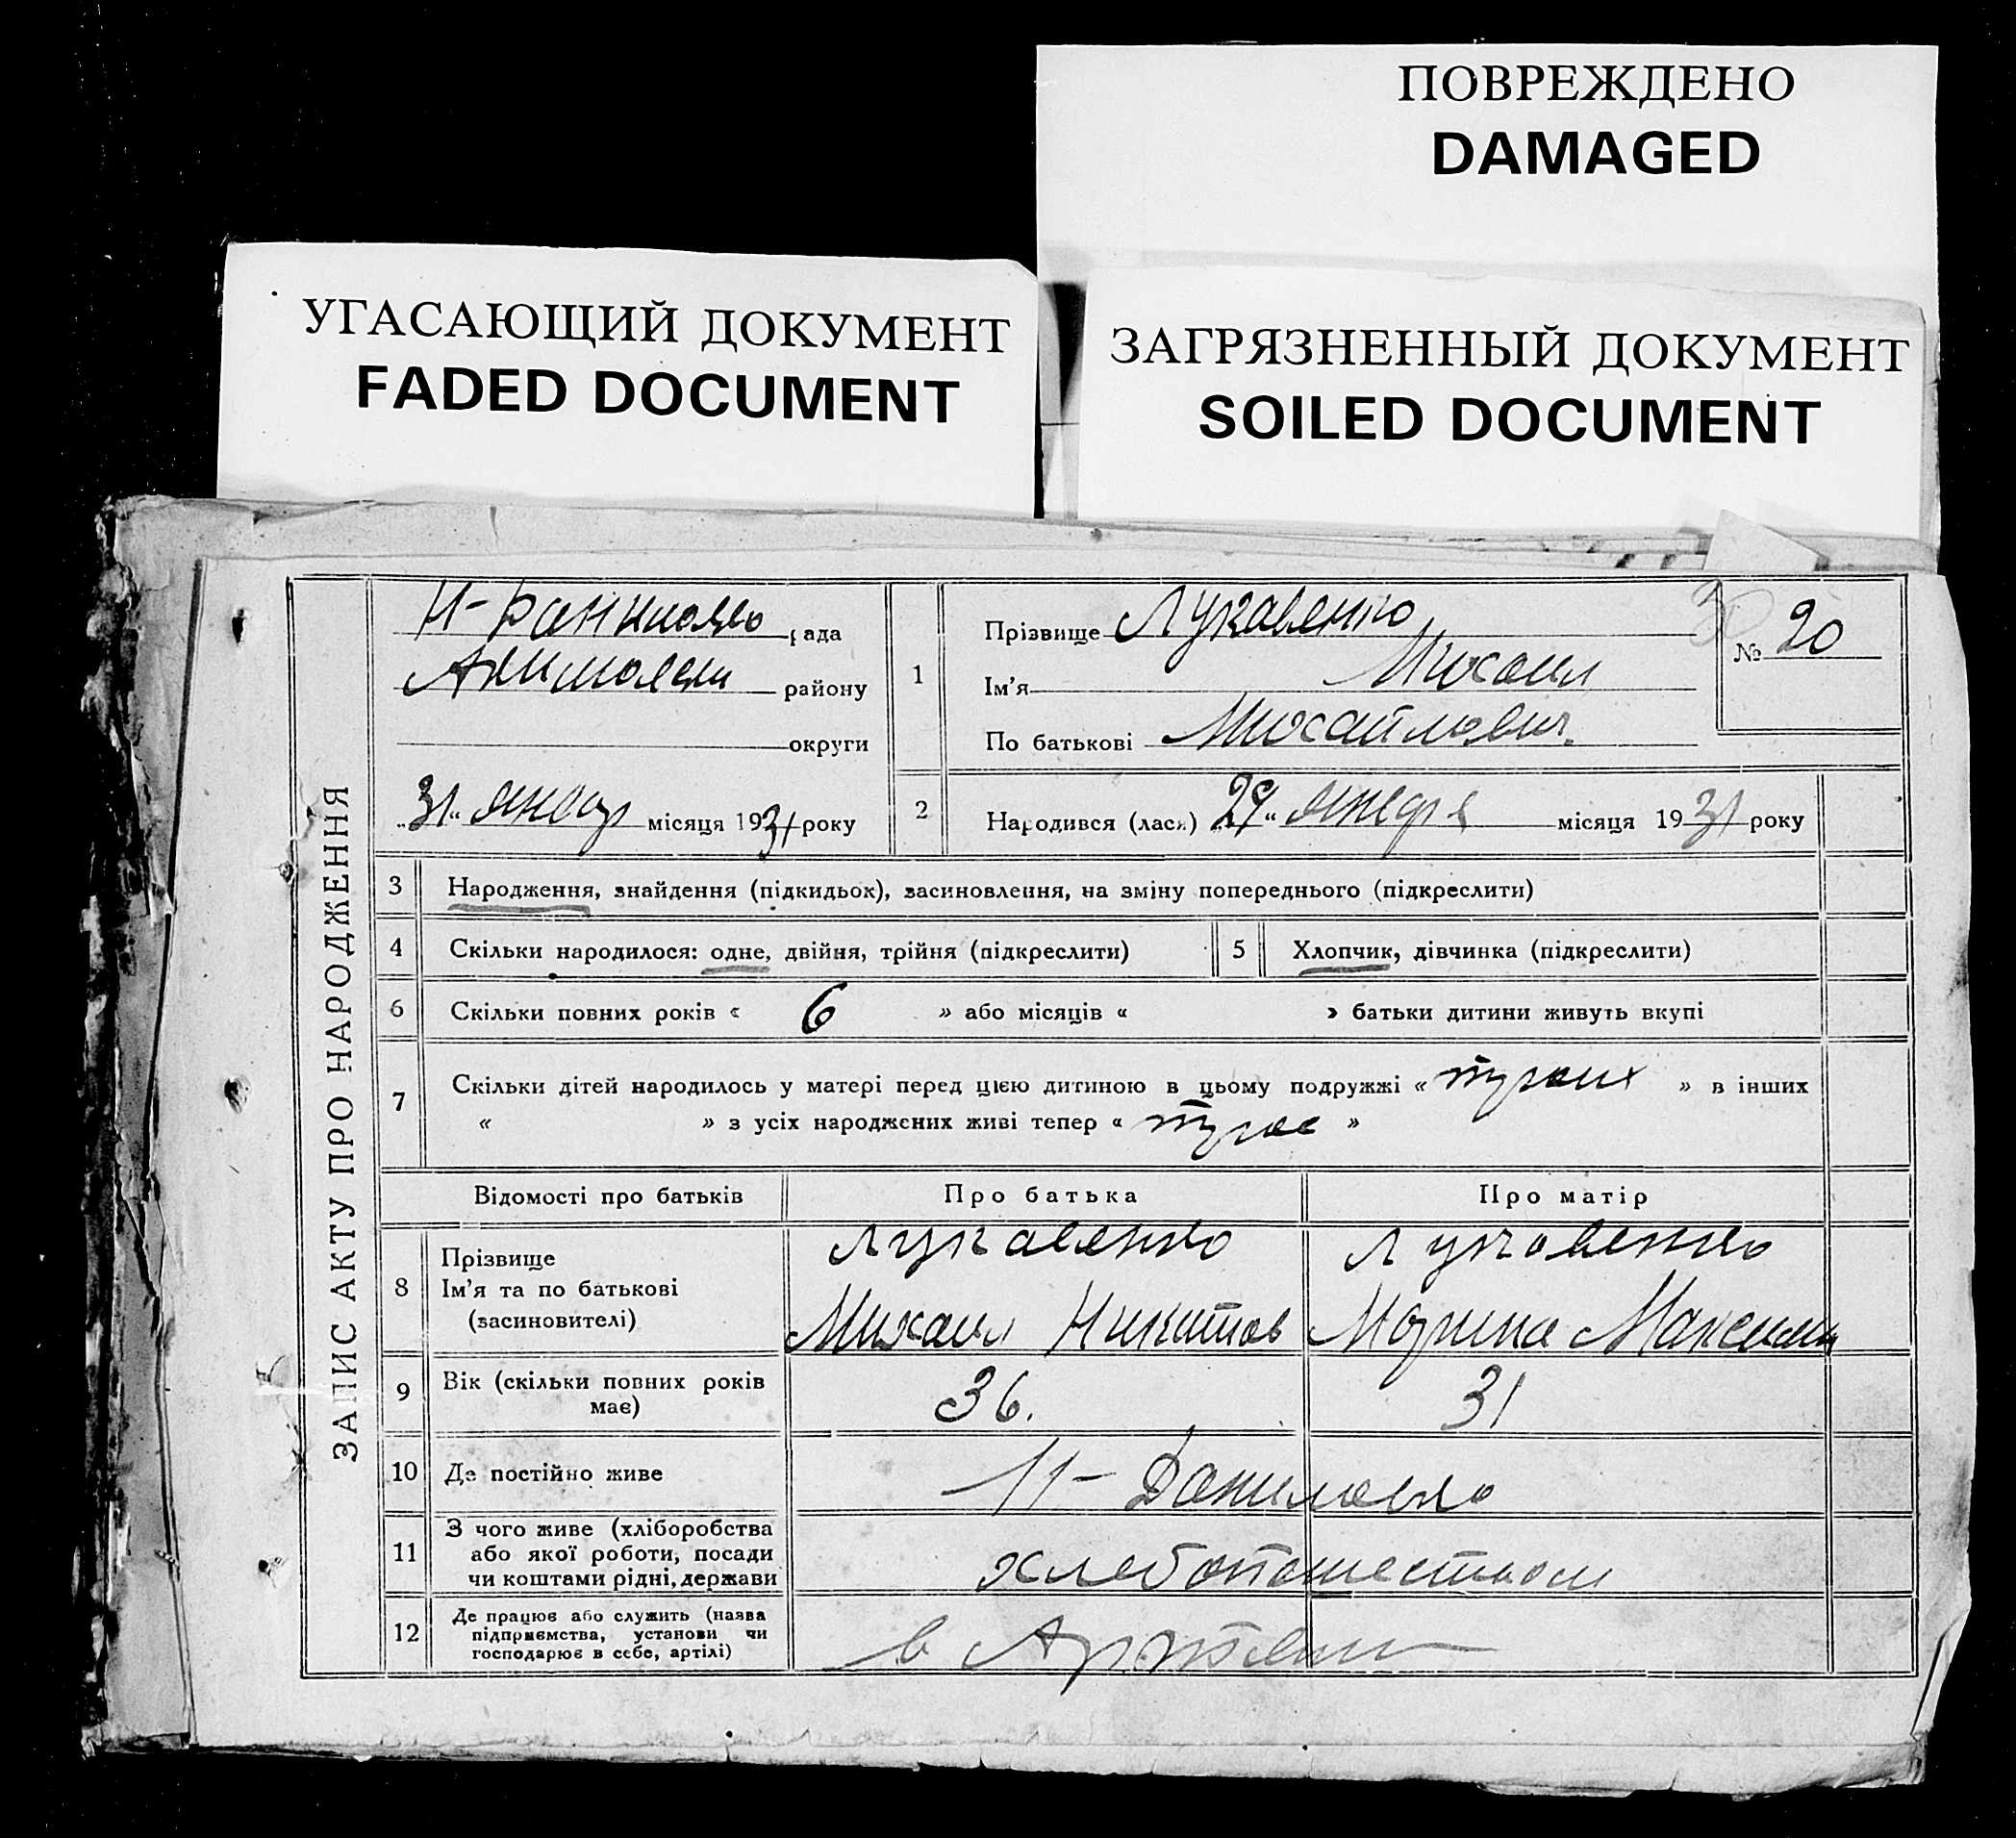 ПОВРЕЖДЕНО
DAMAGED
УГАСАЮЩИЙ ДОКУМЕНТ
FADED DOCUMENT
ЗАГРЯЗНЕННЫЙ ДОКУМЕНТ
SOILED DOCUMENT
ЗАПИС АКТУ ПРО НАРОДЖЕННЯ
рада
району
округи
31 " январ місяця 1931 року
1
Прізвище Лукавенко
Ім'я Михаил
По батькові Михайлович.
№ 20
2
Народився (лася) 29 " января місяця 1931 року
3 Народження, знайдення (підкидьок), засиновлення, на зміну попереднього (підкреслити)
4 Скільки народилося: одне, двійня, трійня (підкреслити)
5 Хлопчик, дівчинка (підкреслити)
6 Скільки повних років « 6 » або місяців « » батьки дитини живуть вкупі
7 Скільки дітей народилось у матері перед цією дитиною в цьому подружжі « » в інших
« » з усіх народжених живі тепер « »
Відомості про батьків Про батька Про матір
8 Прізвище
Ім'я та по батькові
(засиновителі)
Лукавенко
Михаил Никитов
Лукавенко
Марина Максим
9 Вік (скільки повних років
має)
36. 31
10 Де постійно живе
Н-Даниловко
11 З чого живе (хліборобства
або якої роботи, посади
чи коштами рідні, держави
хлебопашеством
12 Де працює або служить (назва
підприємства, установи чи
господарює в себе, артілі)
в Артели